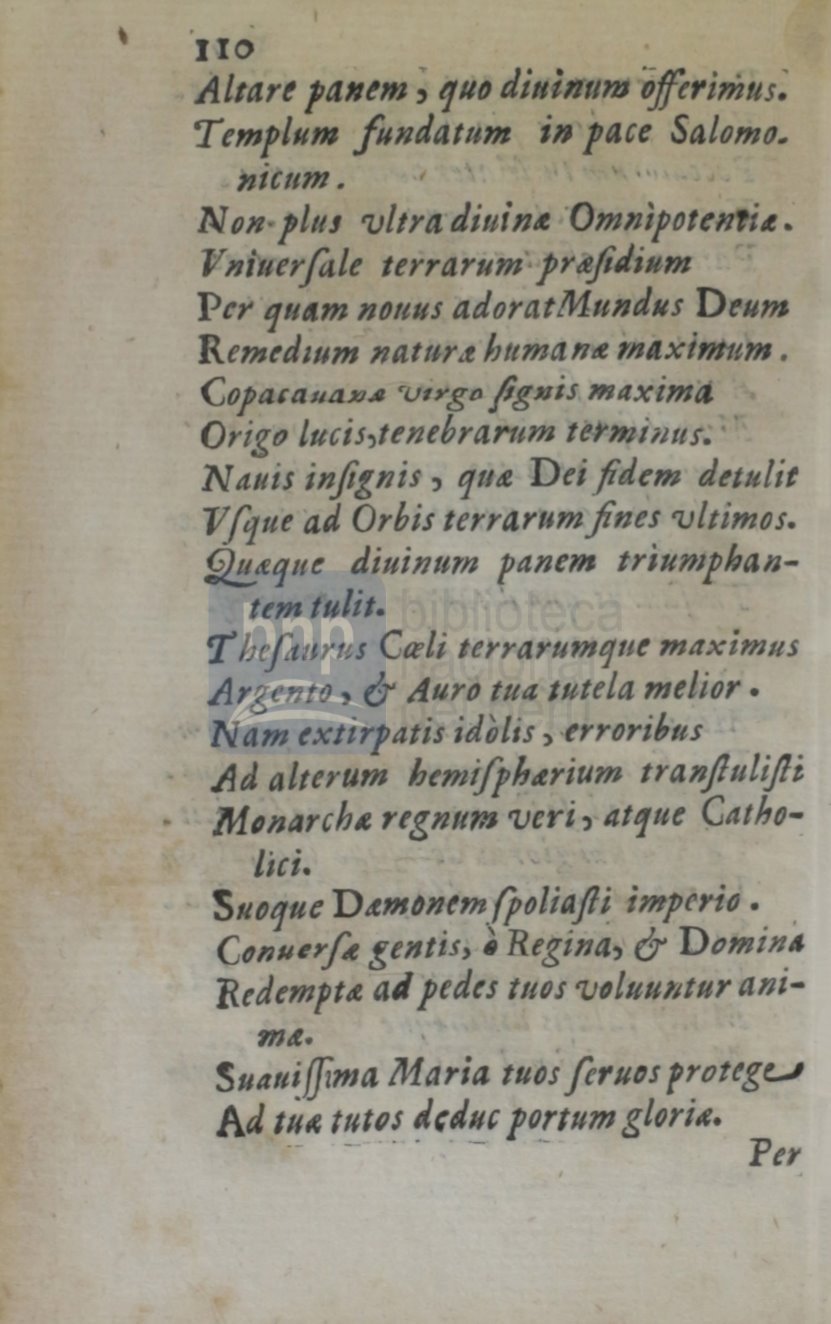 110
Altare panem, quo diuinum offerimus.
Templum fundatum in pace Salomo-
nicum.
Non plus vltra diuinæ Omnipotentiæ.
Vniuerſale terrarum præſidium
Per quam nouus adorat Mundus Deum
Remedium naturæ humanæ maximum.
Copacauanæ virgo ſignis maxima
Origo lucis, tenebrarum terminus.
Nauis inſignis, quæ Dei fidem detulit
Vſque ad Orbis terrarum fines vltimos.
Quæque diuinum panem triumphan-
tem tulit.
Theſaurus Cœli terrarumque maximus
Argento, & Auro tua tutela melior.
Nam extirpatis idòlis, erroribus
Ad alterum hemiſphærium tranſtuliſti
Monarchæ regnum veri, atque Catho-
lici.
Suoque Dæmonem ſpoliaſti imperio.
Conuerſæ gentis, ò Regina, & Domina
Redemptæ ad pedes tuos voluuntur ani-
mæ.
Suauiſſima Maria tuos ſeruos protege
Ad tuæ tutos deduc portum gloriæ.
Per
bnp biblioteca